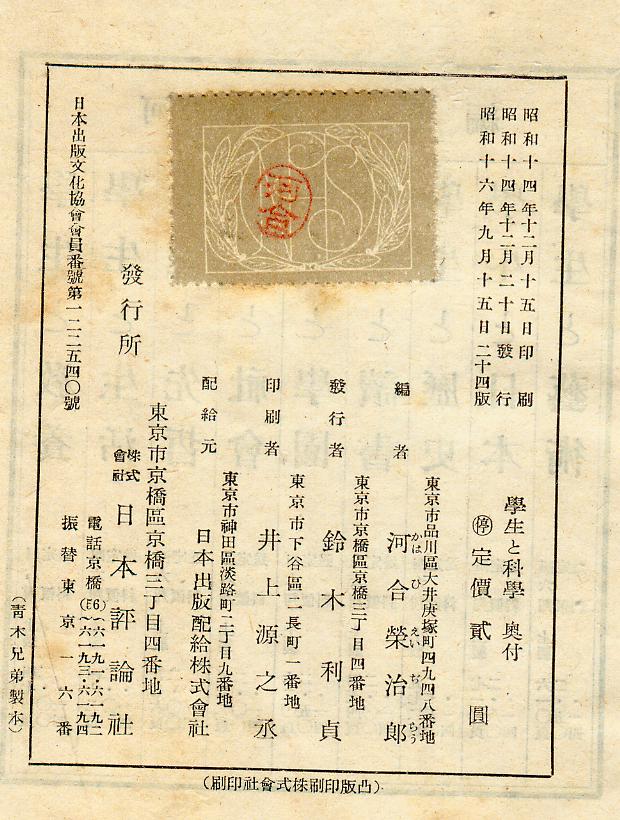 昭和十四年十二月十五日印刷
昭和十四年十二月二十日發行
昭和十六年九月十五日二十四版
學生と科學 奧付
停 定價貳圓
河合
東京市品川區大井庚塚町四九四八番地
編者 河合榮治郎
かはひえいぢらう
東京市京橋區京橋三丁目四番地
發行者 鈴木利貞
東京市下谷區二長町一番地
印刷者 井上源之丞
東京市神田區淡路町二丁目九番地
配給元 日本出版配給株式會社
東京市京橋區京橋三丁目四番地
發行所 株式會社 日本評論社
電話京橋(56)(六一九一・六一九二
(六一九三・六一九四
振替東京一六番
日本出版文化協會會員番號第一二二五四〇號
(靑木兄弟製本)
(凸版印刷株式會社印刷)